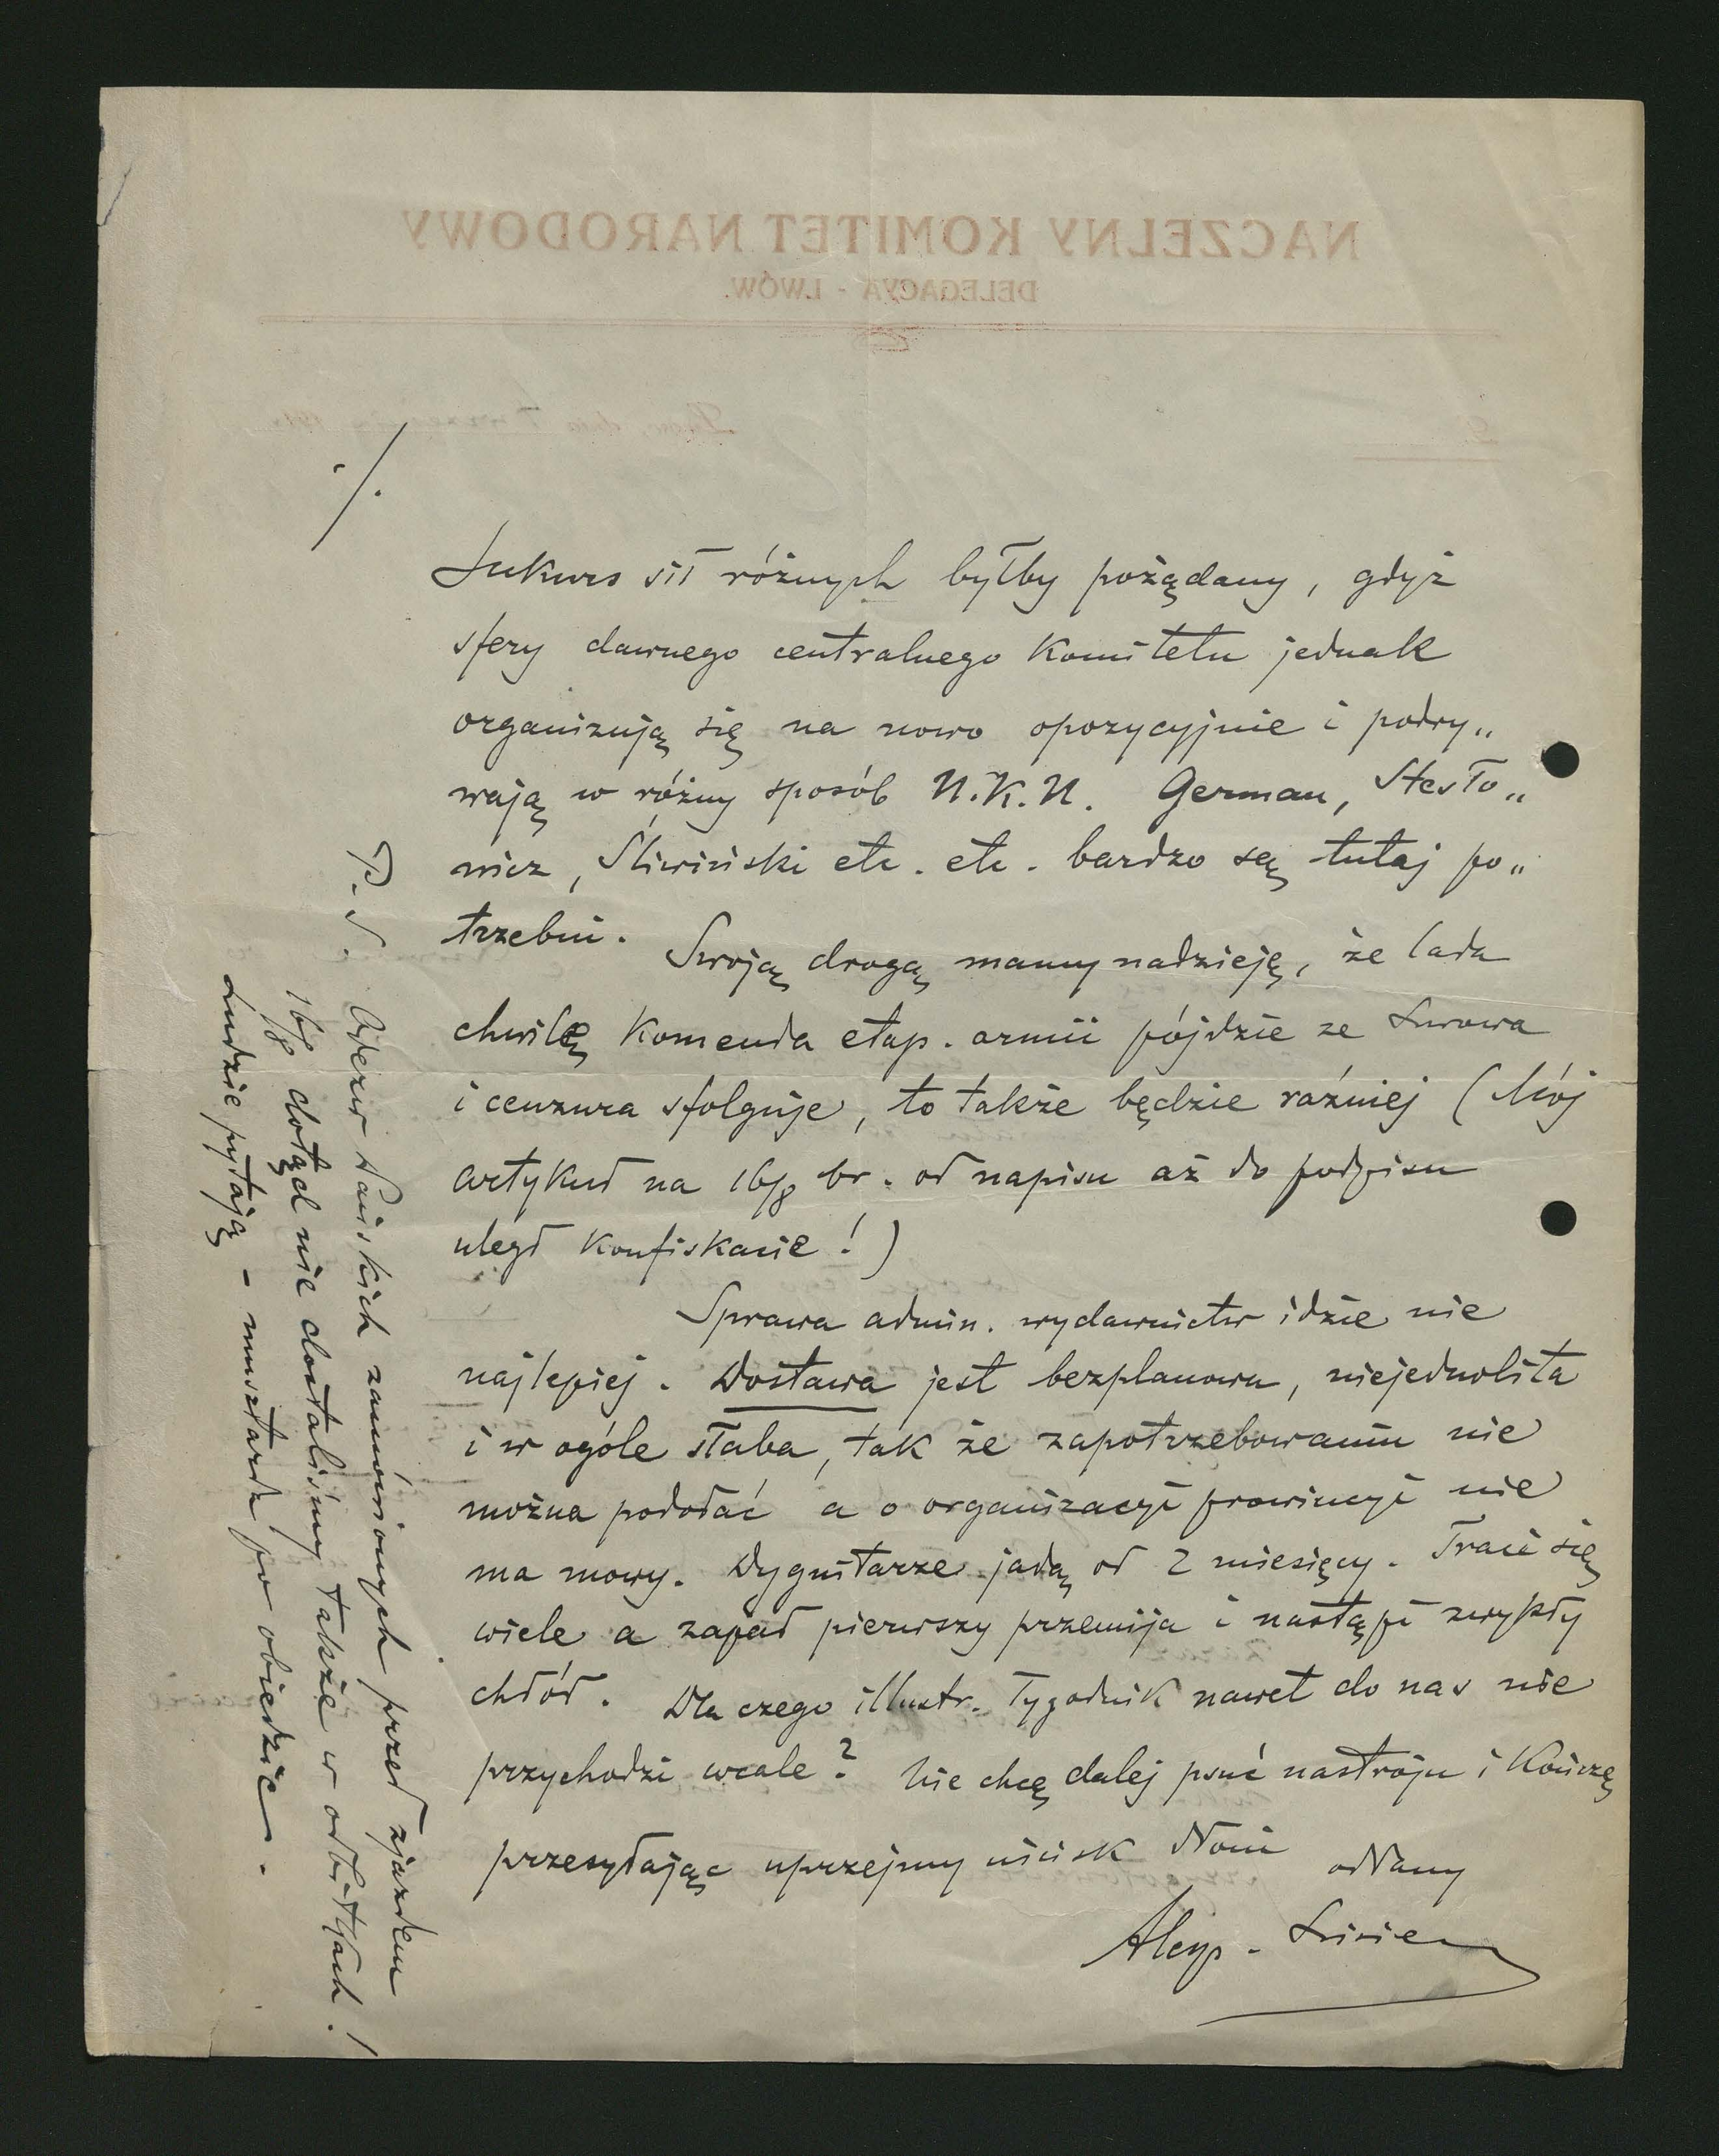 NACZELNY KOMITET NARODOWY
DELEGACYA - LWÓW.
./.
Sukurs sił różnych byłby pożądany, gdyż
sfery dawnego centralnego Komitetu jednak
organizują się na nowo opozycyjnie i podry„
wają w różny sposób N.K.N. German, Stesło„
wicz, Śliwiński etc. etc. bardzo są tutaj po„
trzebni. Swoją drogą mamy nadzieję, że lada
chwilę Komenda etap. armii pójdzie ze Lwowa
i cenzura sfolguje, to także będzie raźniej (Mój
artykuł na 16/8 br. od napisu aż do podpisu
uległ konfiskacie!)
Sprawa admin. wydawnictw idzie nie
najlepiej. Dostawa jest bezplanowa, niejednolita
i w ogóle słaba, tak że zapotrzebowaniu nie
można podołać a o organizacyi prowincyi nie
ma mowy. Dygnitarze jadą od 2 miesięcy. Traci się
wiele a zapał pierwszy przemija i nastąpi zwykły
chłód. Dla czego illustr. Tygodnik nawet do nas nie
przychodzi wcale? Nie chcę dalej psuć nastroju i kończę
przesyłając uprzejmy uścisk dłoni oddany
P.S. Odezw Pańskich zamówionych przed zjazdem
16/8 dotąd nie dostaliśmy także w odbitkach!
Ludzie pytają - musztarda po obiedzie.